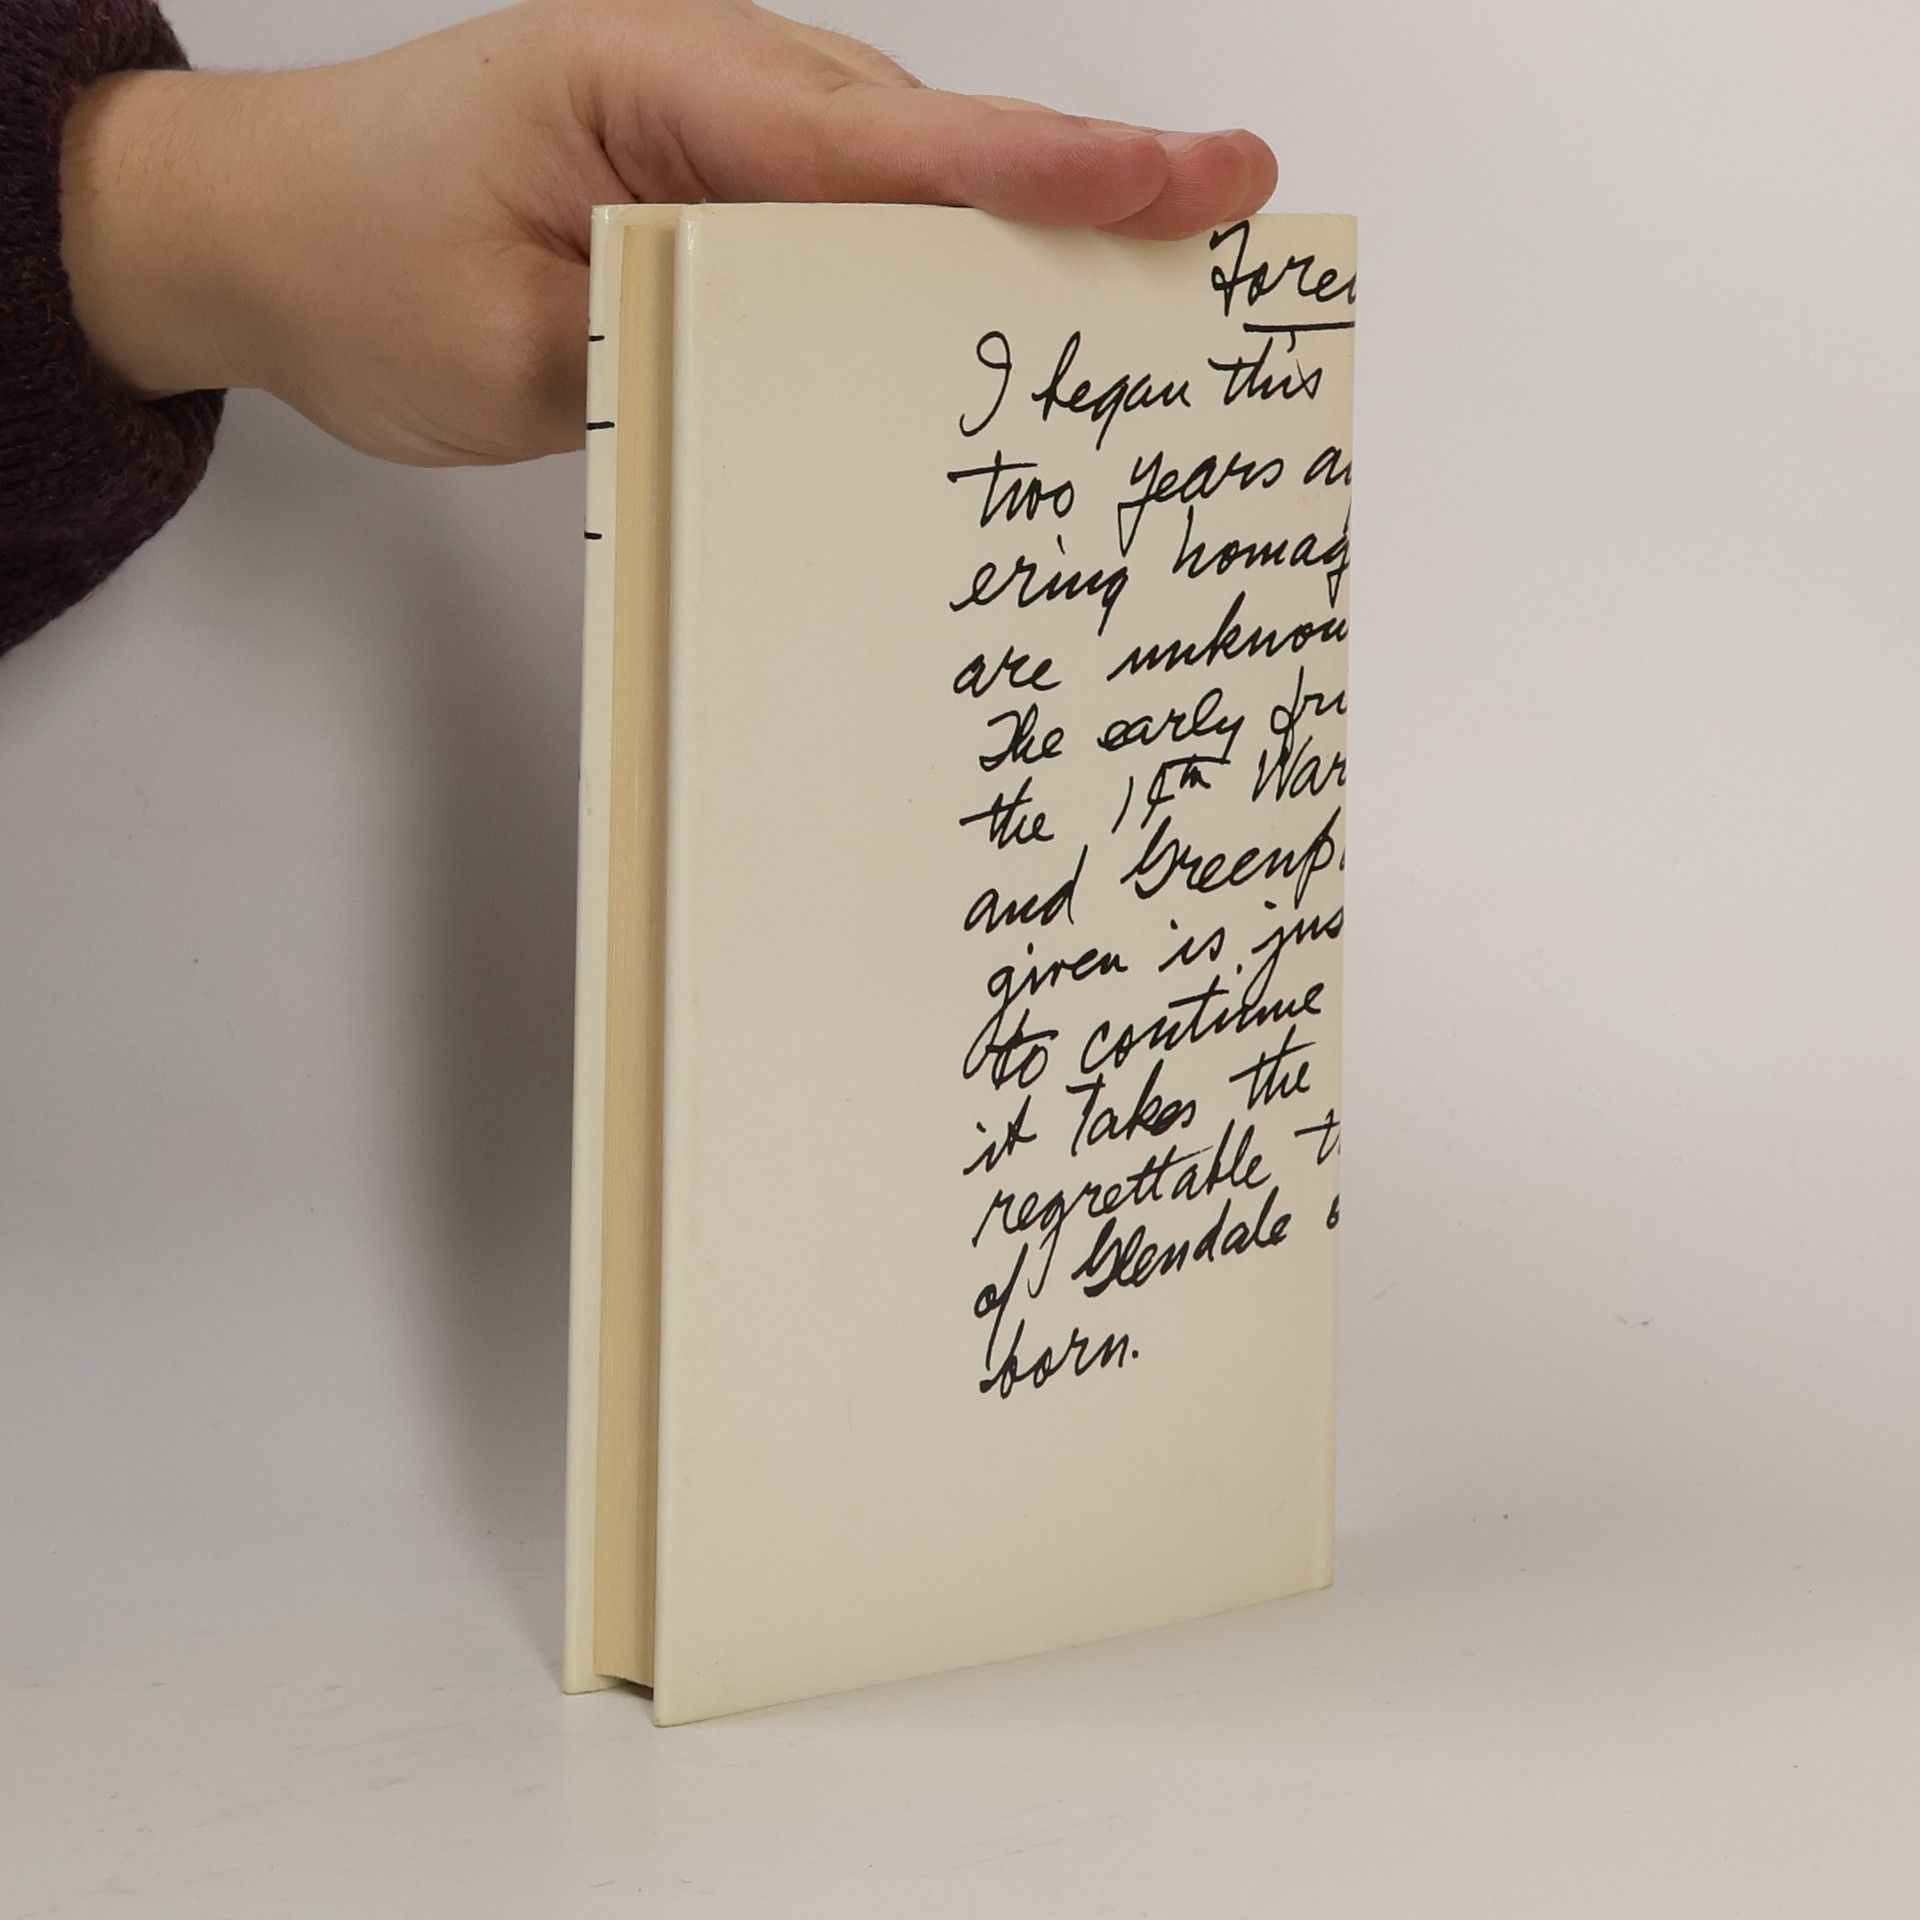 Forew
I began this
two years a
ering homag
are unknow
The early fri
the 14th War
and Greenp
given is jus
to continue
it takes the
regrettable t
of Glendale
born.